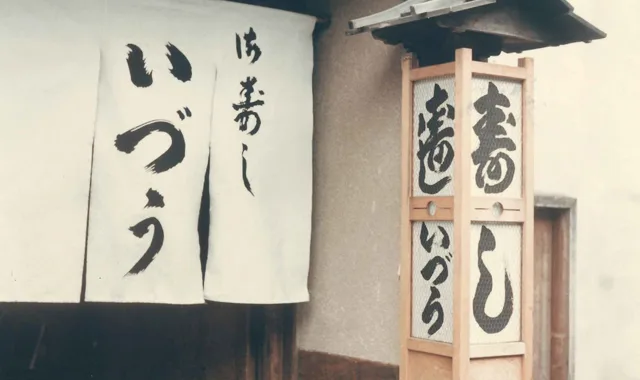 御寿し
いづう
寿し
いづう
寿
し